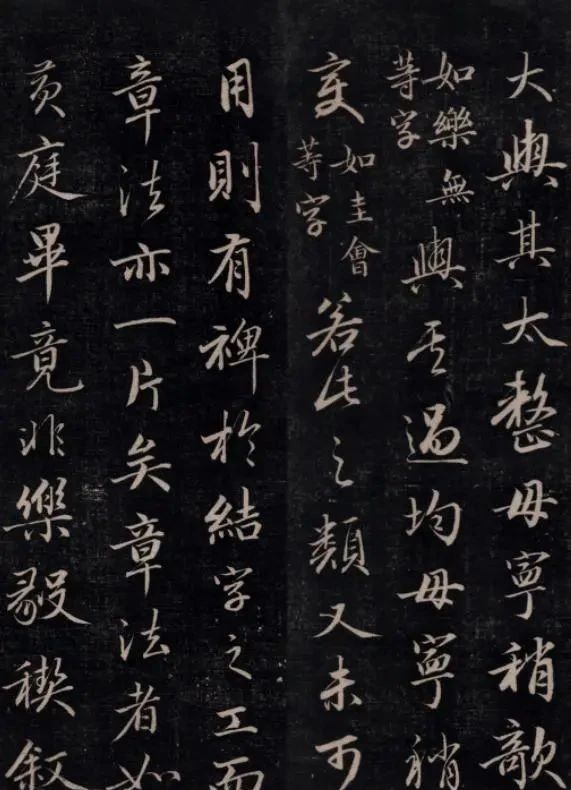 大與其太整毋寧稍欹
如樂無
等字
與其過均毋寧稍
变
如圭會
等字
若此之類又未可
用則有裨於結字之工而
章法亦一片矣章法者如
黄庭畢竟非樂毅禊叙